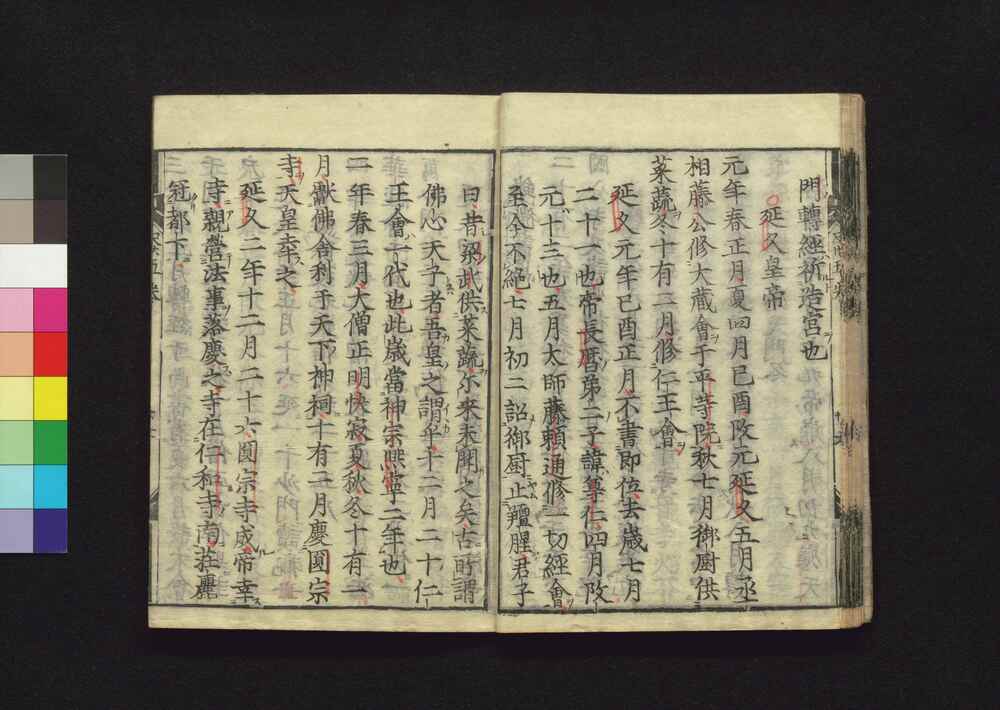 門轉經祈造宮也
延久皇帝
元年春正月夏四月己酉改元延久五月丞
相藤公修大藏會于平等院秋七月御厨供
菜蔬冬十有二月修仁王會
延久元年己酉正月不書即位去歳七月
二十一也帝長居第二子諱尊仁四月改
元十三也五月太師藤賴通修一切經會
至今不絶七月初二詔御厨止羶腥君子
曰昔梁武供菜蔬尓來未聞之矣古所謂
佛心天子者吾皇之謂乎十二月二十仁
王會一代也此歳當神宗熈寧二年也
二年春三月大僧正明快寂夏秋冬十有一
月獻佛舍利于天下神祠十有二月慶圓宗
寺天皇幸之
延久二年十二月二十六圓宗寺成帝幸
寺親營法事落慶之寺在仁和寺南莊麗
冠都下